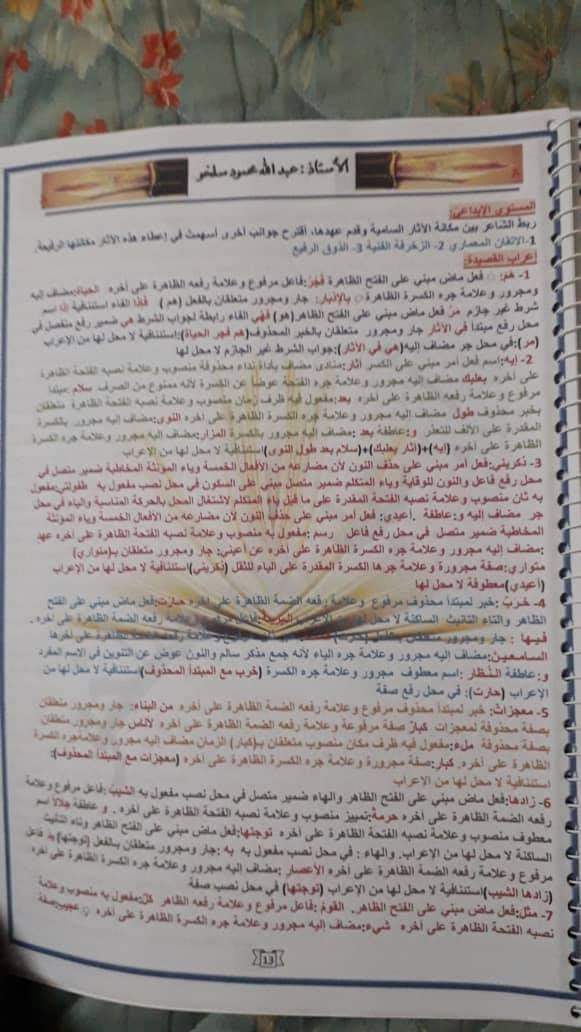 الأستاذ : عبد الله محمود سلخو
المستوى الإبداعي:
ربط الشاعر بين مكانة الآثار السامية وقدم عهدها، اقترح جوانب أخرى أسهمت في إعطاء هذه الآثار مكانتها الرفيعة.
1-الاتقان المعماري 2- الزخرفة الفنية 3- الذوق الرفيع
اعراب القصيدة:
1- همَ: فعل ماض مبني على الفتح الظاهرة فجرُ:فاعل مرفوع وعلامة رفعه الضمة الظاهرة على أخره الحياة:مضاف إليه
ومجرور وعلامة جره الكسرة الظاهرة بالإدبار: جار ومجرور متعلقان بالفعل (هم ) فإذا الفاء استئنافية إذا اسم
شرط غير جازم مرَ فعل ماض مبني على الفتح الظاهر(هو) فهي الفاء رابطة لجواب الشرط هي ضمير رفع منفصل في
محل رفع مبتدا في الآثار جار ومجرور متعلقان بالخبر المحذوف(هم فجر الحياة):استئنافية لا محل لها من الإعراب
(مر):في محل جر مضاف إليه(هي في الآثار):جواب الشرط غير الجازم لا محل لها
2- إيه:اسم فعل أمر مبني على الكسر آثار:منادى مضاف بأداة نداء محذوفة منصوب وعلامة نصبه الفتحة الظاهرة
على أخره بعلبك مضاف إليه مجرور وعلامة جره الفتحة عوضاً عن الكسرة لأنه ممنوع من الصرف سلام :مبتدا
مرفوع وعلامة رفعه الظاهرة على أخره بعد:مفعول فيه ظرف زمان منصوب وعلامة نصبه الفتحة الظاهرة متعلقان
بخبر محذوف طول مضاف إليه مجرور وعلامة جره الكسرة الظاهرة على اخره النوى:مضاف إليه مجرور بالكسرة
المقدرة على الألف للتعذر و:عاطفة بعد :مضاف إليه مجرور بالكسرة المزار:مضاف إليه مجرور وعلامة جره الكسرة
الظاهرة على أخره (إيه)+(آثار بعلبك)+(سلام بعد طول النوى)استئنافية لا محل لها من الإعراب
3- ذكريني:فعل أمر مبني على حذف النون لأن مضارعه من الأفعال الخمسة وياء المؤنثة المخاطبة ضمير متصل في
محل رفع فاعل والنون للوقاية وياء المتكلم ضمير متصل مبني على السكون في محل نصب مفعول به طفولتي:مفعول
به ثان منصوب وعلامة نصبه الفتحة المقدرة على ما قبل ياء المتكلم لاشتغال المحل بالحركة المناسبة والياء في محل
جر مضاف إليه و:عاطفة .أعيدي: فعل أمر مبني على حذف النون لأن مضارعه من الأفعال الخمسة وياء المؤنثة
المخاطبة ضمير متصل في محل رفع فاعل رسم :مفعول به منصوب وعلامة نصبه الفتحة الظاهرة على أخره عهد
:مضاف إليه مجرور وعلامة جره الكسرة الظاهرة على أخره عن أعيني: جار ومجرور متعلقان بـ(متواري)
متواري:صفة مجرورة وعلامة جرها الكسرة المقدرة على الياء للثقل (ذكريني)استئنافية لا محل لها من الإعراب
(أعيدي)معطوفة لا محل لها
4- خَـرِبٌ: خبر لمبتدأ محذوف مرفوع وعلامة رفعه الضمة الظاهرة على أخره حـارت:فعل ماض مبني على الفتح
الظاهر والتاء التانيث الساكنة لا محل لها من الإعراب فاعل مرفوع وعلامة رفعه الضمة الظاهرة على أخره .
فـيـها : جار ومجرور متعلقان بالفعل وعلامة رفعه الظاهرة على أخرها
السامـعـين:مضاف إليه مجرور وعلامة جره الياء لأنه جمع مذكر سالم والنون عوض عن التنوين في الاسم المفرد
و: عاطفة النُظار :اسم معطوف مجرور وعلامة جره الكسرة (خرب مع المبتدأ المحذوف)استئنافية لا محل لها من
الإعراب (حارت): في محل رفع صفة
5- معجزاتٌ: خبر لمبتدأ محذوف مرفوع وعلامة رفعه الضمة الظاهرة على أخره من البناء: جار ومجرور متعلقان
بصفة محذوفة لمعجزات كبار صفة مرفوعة وعلامة رفعه الضمة الظاهرة على أخره لأناس جار ومجرور متعلقان
بصفة محذوفة ملء:مفعول فيه ظرف مكان منصوب متعلقان بـ(كبار) الزمان مضاف إليه مجرور وعلامةجره الكسرة
الظاهرة على أخره. كبار:صفة مجرورة وعلامة جره الكسرة الظاهرة على أخره (معجزات مع المبتدا المحذوف):
استئنافية لا محل لها من الإعراب
6- زادها:فعل ماض مبني على الفتح الظاهر والهاء ضمير متصل في محل نصب مفعول به الشيبُ :فاعل مرفوع وعلامة
رفعه الضمة الظاهرة على أخره حرمة:تمييز منصوب وعلامة نصبه الفتحة الظاهرة على أخره . و عاطفة جلالاً اسم
معطوف منصوب وعلامة نصبه الفتحة الظاهرة على أخره توجتها:فعل ماض مبني على الفتح الظاهر وتاء التانيث
الساكنة لا محل لها من الإعراب. والهاء : في محل نصب مفعول به به :جار ومجرور متعلقان بالفعل (توجتها) يد فاعل
مرفوع وعلامة رفعه الضمة الظاهرة على أخره الأعصار :مضاف إليه مجرور وعلامة جره الكسرة الظاهرة على أخره
(زادها الشيب)استئنافية لا محل لها من الإعراب (توجتها) في محل نصب صفة
7- مثل:فعل ماض مبني على الفتح الظاهر. القوم :فاعل مرفوع وعلامة رفعه الظاهر كلَ:مفعول به منصوب وعلامة
نصبه الفتحة الظاهرة على أخره شيء:مضاف إليه مجرور وعلامة جره الكسرة الظاهرة على أخره عجيب:صفة
13